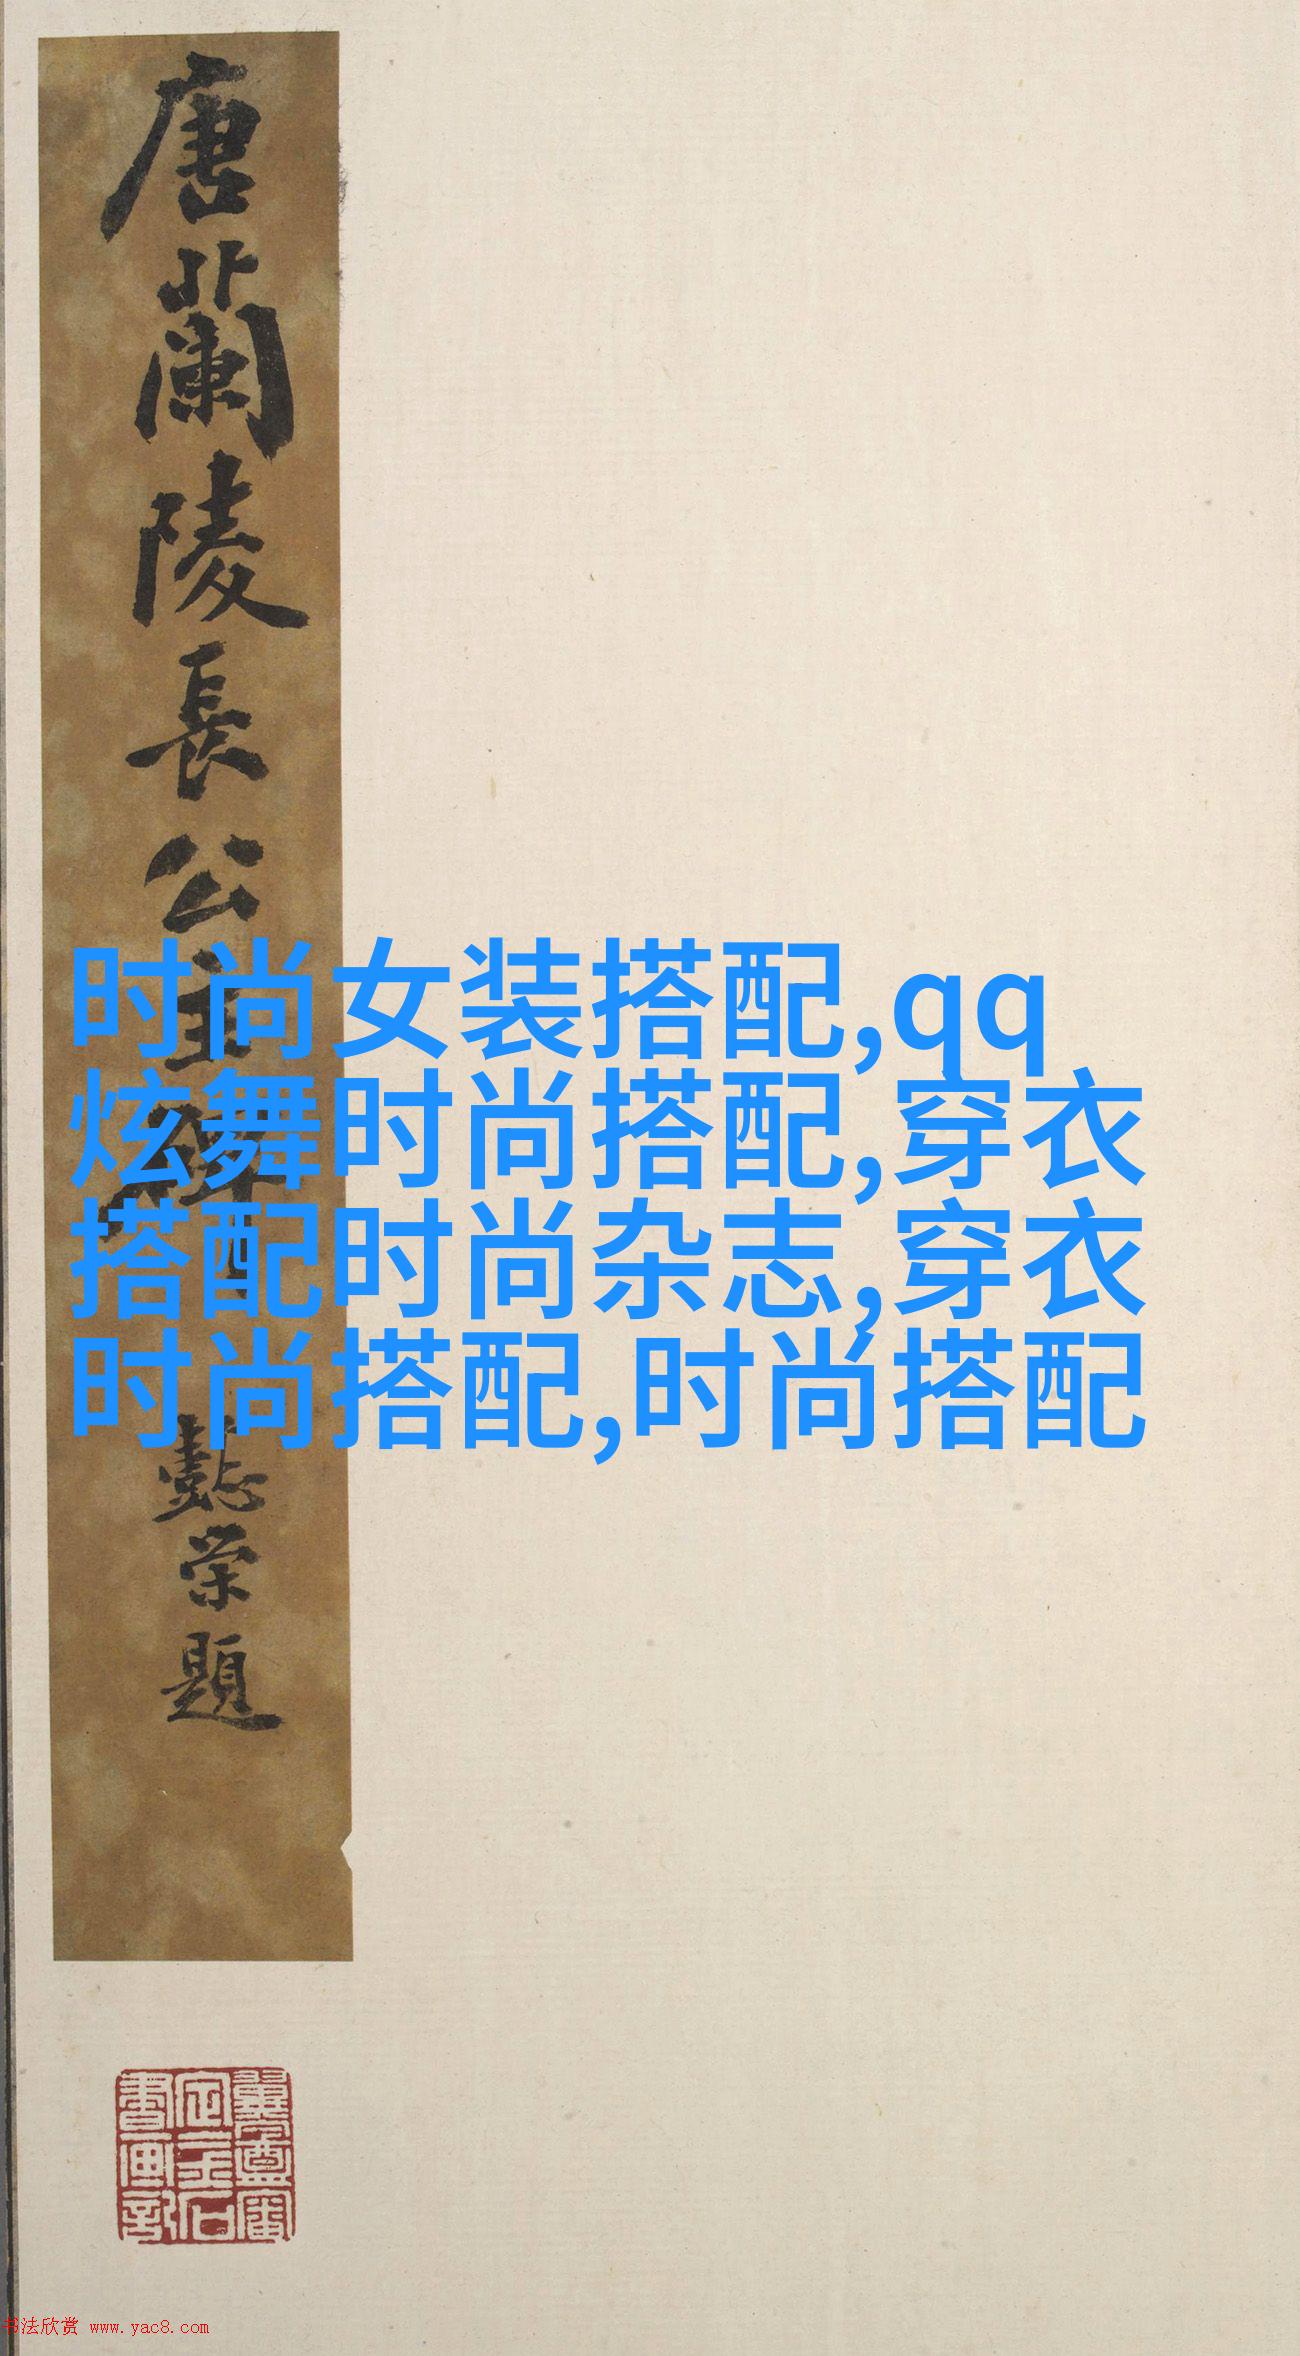 唐蘭陵長公主碑
懿荣題
时尚女装搭配,qq
炫舞时尚搭配,穿衣
搭配时尚杂志,穿衣
时尚搭配,时尚搭配
书法欣赏 www.yac8.com